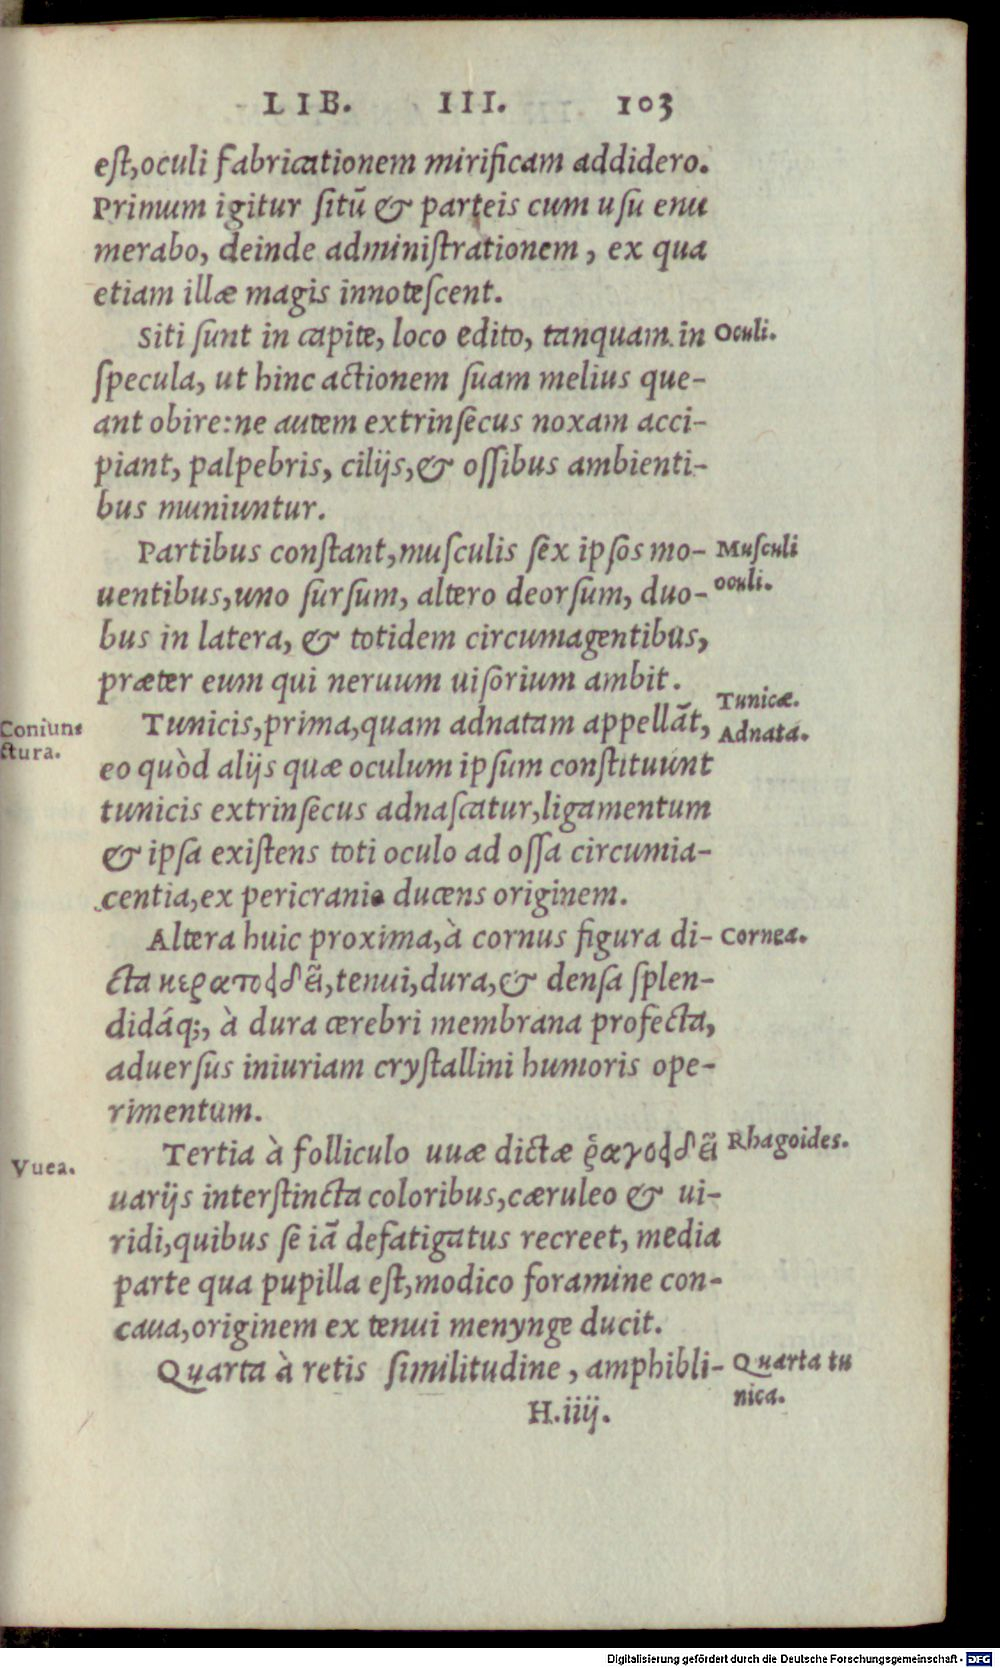 LIB. III. 103
est, oculi fabricationem mirificam addidero.
Primum igitur sitū & parteis cum usu enu
merabo, deinde administrationem, ex qua
etiam illæ magis innotescent.
Siti sunt in capite, loco edito, tanquam in
Oculi.
specula, ut hinc actionem suam melius que-
ant obire: ne autem extrinsecus noxam acci-
piant, palpebris, cilijs, & ossibus ambienti-
bus muniuntur.
Partibus constant, musculis sex ipsos mo-
Musculi
uentibus, uno sursum, altero deorsum, duo-
oculi.
bus in latera, & totidem circumagentibus,
præter eum qui neruum uisorium ambit.
Tunicæ.
Tunicis, prima, quam adnatam appellāt,
Adnata.
Coniun=
ctura.
eo quòd alijs quæ oculum ipsum constituunt
tunicis extrinsecus adnascatur, ligamentum
& ipsa existens toti oculo ad ossa circumia-
centia, ex pericranio ducens originem.
Altera huic proxima, à cornus figura di-
Cornea.
cta κερατοειδὴς, tenui, dura, & densa splen-
didáq;, à dura cerebri membrana profecta,
aduersus iniuriam crystallini humoris ope-
rimentum.
Tertia à folliculo uuæ dictæ ῥαγοειδὴς
Rhagoides.
Vuea.
uarijs interstincta coloribus, cæruleo & ui-
ridi, quibus se iā defatigatus recreet, media
parte qua pupilla est, modico foramine con-
caua, originem ex tenui menynge ducit.
Quarta à retis similitudine, amphibli-
Quarta tu
nica.
H.iiij.
Digitalisierung gefördert durch die Deutsche Forschungsgemeinschaft - DFG